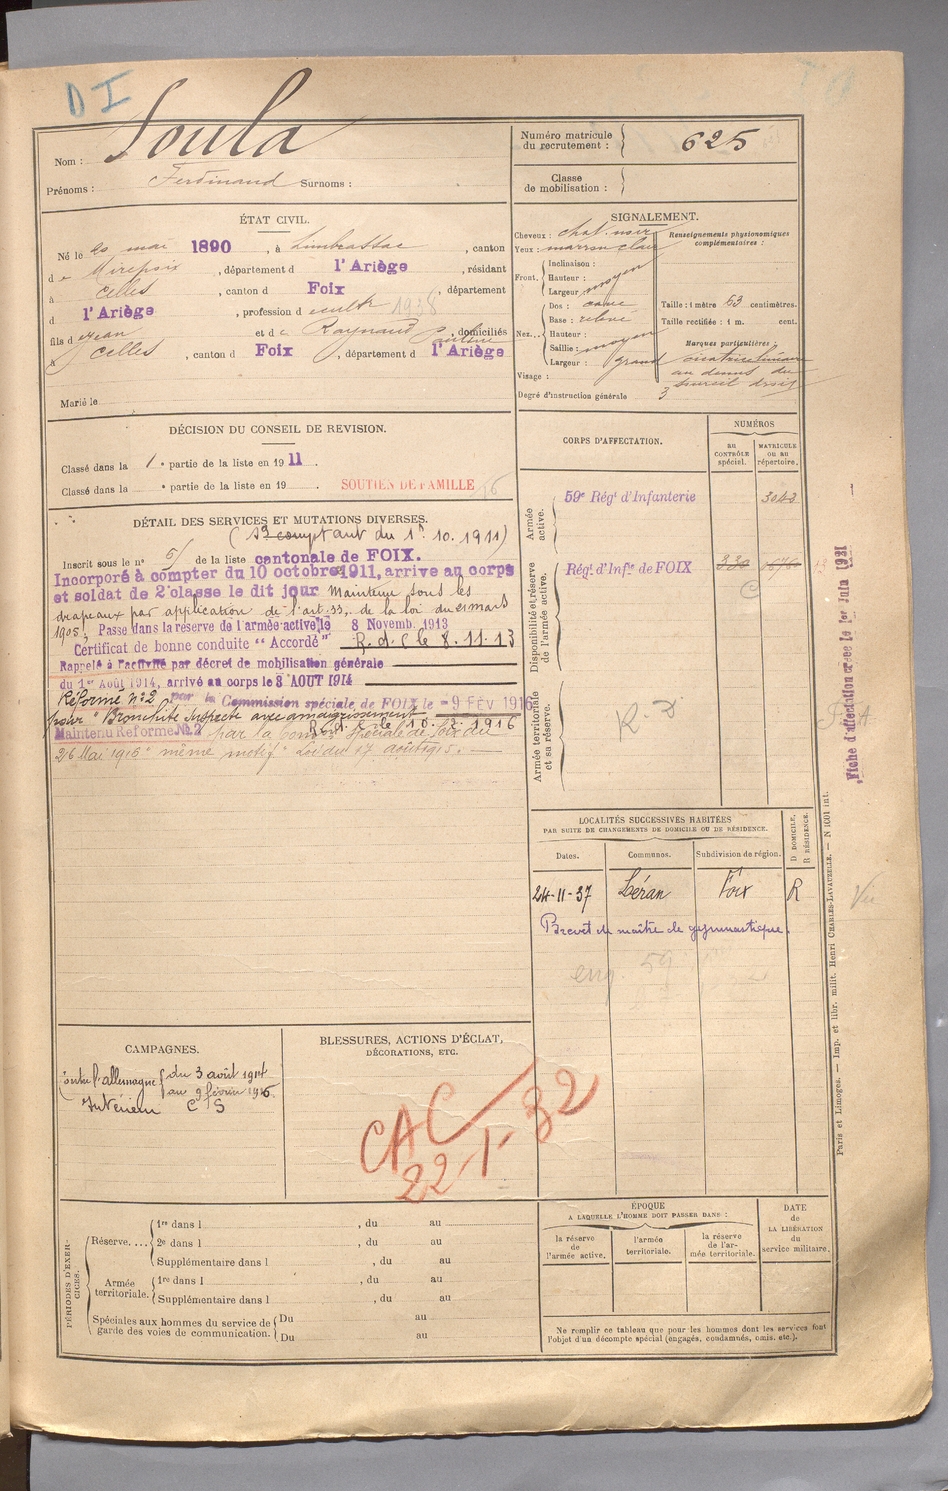 DI
Nom : Soula
Prénoms : Ferdinand Surnoms :
Numéro matricule
du recrutement :
625
Classe
de mobilisation :
ÉTAT CIVIL.
Né le 20 mai 1890, à Limbrassac, canton
de Mirepoix, département d l'Ariège, résidant
à Celles, canton d Foix, département
d l'Ariège, profession d cult 1938
fils d Jean et de Raynaud Pauline, domiciliés
à Celles, canton d Foix, département d l'Ariège
Marié le
SIGNALEMENT.
Cheveux : chat. noir
Yeux : marron clair
Front. Inclinaison :
Hauteur : moyen
Largeur :
Nez. Dos : cave
Base : relevé
Hauteur :
Saillie : moyen
Largeur : grand
Visage :
Renseignements physionomiques
complémentaires :
Taille : 1 mètre 63 centimètres.
Taille rectifiée : 1 m. cent.
Marques particulières :
cicatrice linéaire
au dessus du
sourcil droit
Degré d'instruction générale 3
DÉCISION DU CONSEIL DE REVISION.
Classé dans la 1e partie de la liste en 1911.
Classé dans la e partie de la liste en 19
SOUTIEN DE FAMILLE
DÉTAIL DES SERVICES ET MUTATIONS DIVERSES.
(St comptant du 1r 10.1911)
Inscrit sous le n° 5 de la liste cantonale de FOIX.
Incorporé à compter du 10 octobre 1911, arrive au corps
et soldat de 2e classe le dit jour Maintenu sous les
drapeaux par application de l'art. 33, de la loi du 21 mars
1905, Passé dans la réserve de l'armée active le 8 Novemb. 1913
Certificat de bonne conduite "Accordé" R.d.C le 8.11.13
Rappelé à l'activité par décret de mobilisation générale
du 1er Août 1914, arrivé au corps le 3 AOUT 1914
Réformé n°2 par la Commission spéciale de FOIX le - 9 FÉV 1916
pour "Bronchite suspecte avec amaigrissement"
R.d.C. le 10.2.1916
Maintenu Réformé No 2 par la comm spéciale de Foix du
26 Mai 1916 "même motif" Loi du 17 août 1915.
CORPS D'AFFECTATION.
NUMÉROS
au
CONTRÔLE
spécial.
MATRICULE
ou au
répertoire.
Armée
active.
59e Régt d'Infanterie
3043
Disponibilité et réserve
de l'armée active.
Régt d'Infie de FOIX
C
Armée territoriale
et sa réserve.
Fiche d'affectation créée le 1er Juin 1921
LOCALITÉS SUCCESSIVES HABITÉES
PAR SUITE DE CHANGEMENTS DE DOMICILE OU DE RÉSIDENCE.
Dates.
Communes.
Subdivision de région.
D DOMICILE,
R RÉSIDENCE.
24-11-37 Léran Foix R
Brevet de maître de gymnastique.
eng. 59
CAMPAGNES.
Contre l'allemagne du 3 août 1914
au 9 février 1916.
Intérieur C S
BLESSURES, ACTIONS D'ÉCLAT,
DÉCORATIONS, ETC.
CAC
22-1-32
PÉRIODES D'EXERCICES.
Réserve.... 1re dans l , du au
2e dans l , du au
Supplémentaire dans l , du au
Armée
territoriale. 1re dans l , du au
Supplémentaire dans l , du au
Spéciales aux hommes du service de
garde des voies de communication. Du au
Du au
ÉPOQUE
A LAQUELLE L'HOMME DOIT PASSER DANS :
la réserve
de
l'armée active.
l'armée
territoriale.
la réserve
de l'ar-
mée territoriale.
DATE
de
LA LIBÉRATION
du
service militaire.
Ne remplir ce tableau que pour les hommes dont les services font
l'objet d'un décompte spécial (engagés, condamnés, omis, etc.).
Paris et Limoges. — Imp. et libr. milit. Henri CHARLES-LAVAUZELLE. — N 1091 int.